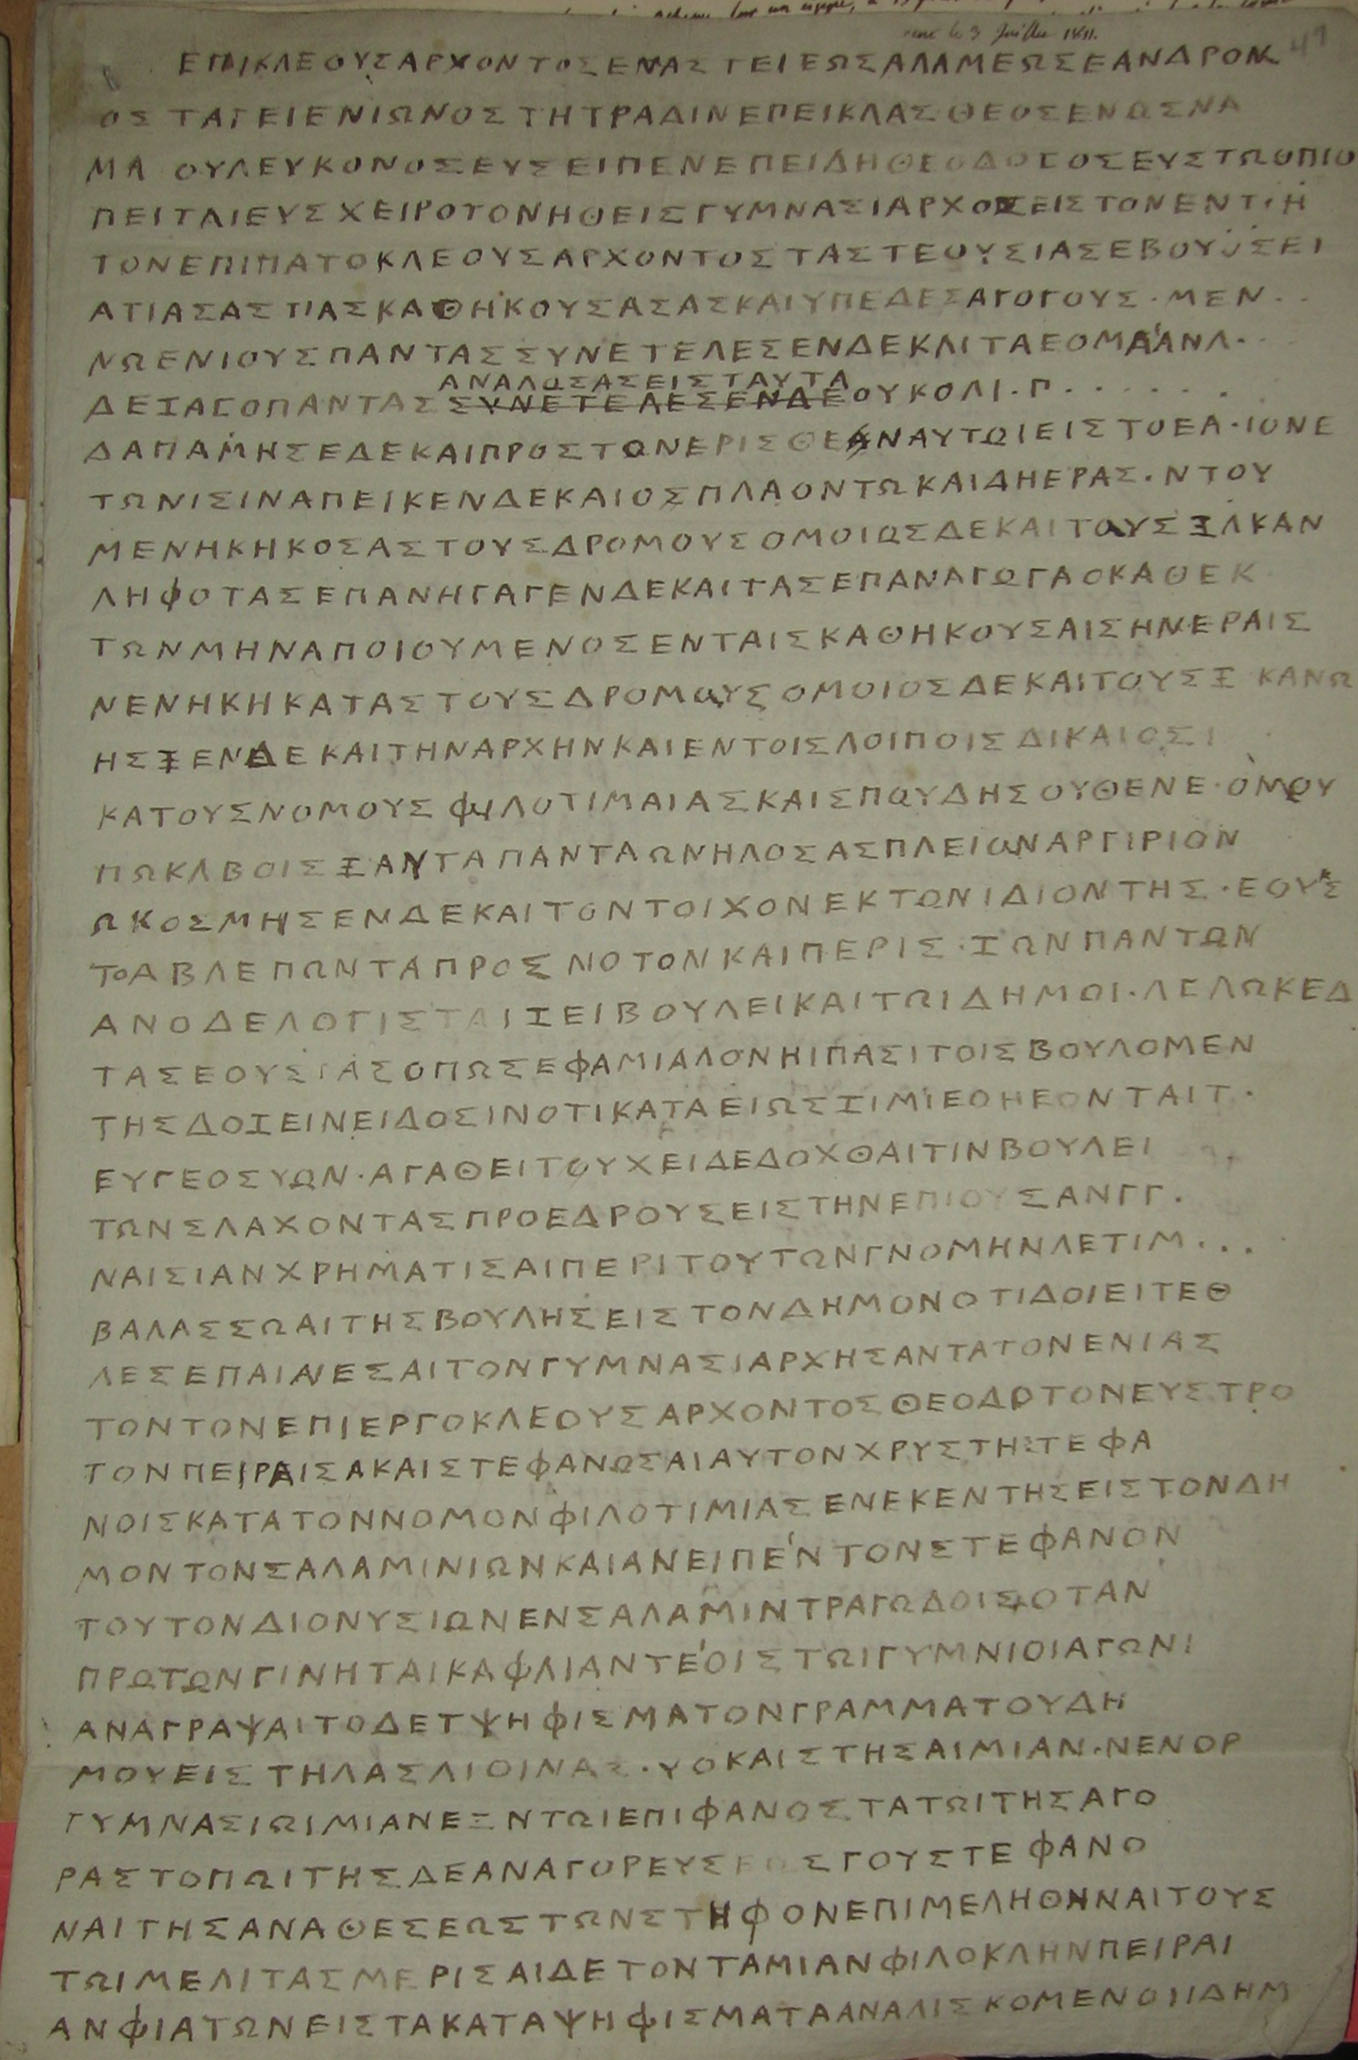 ΕΠΙΚΛΕΟΥΣΑΡΧΟΝΤΟΣΕΝΑΣΤΕΙΕΩΣΑΛΑΜΕΩΣΕΑΝΔΡΟΝ
ΟΣΤΑΓΕΙΕΝΙΩΝΟΣΤΗΤΡΑΔΙΝΕΠΕΙΚΛΑΣΘΕΟΣΕΝΩΣΝΑ
ΜΑ ΟΥΛΕΥΚΟΝΟΣΕΥΣΕΙΠΕΝΕΠΕΙΔΗΘΕΟΔΟΓΟΣΕΥΣΤΩΟΠΙΟ
ΠΕΙΤΛΙΕΥΣΧΕΙΡΟΤΟΝΗΘΕΙΣΓΥΜΝΑΣΙΑΡΧΟΣΕΙΣΤΟΝΕΝΤΙΗ
ΤΟΝΕΠΙΠΑΤΟΚΛΕΟΥΣΑΡΧΟΝΤΟΣΤΑΣΤΕΟΥΣΙΑΣΕΒΟΥΟΣΕΙ
ΑΤΙΑΣΑΣΤΙΑΣΚΑΘΗΚΟΥΣΑΣΑΣΚΑΙΥΠΕΔΕΣΑΓΟΓΟΥΣ·ΜΕΝ··
ΝΩΕΝΙΟΥΣΠΑΝΤΑΣΣΥΝΕΤΕΛΕΣΕΝΔΕΚΛΙΤΑΕΟΜΑΑΝΛ···
ΑΝΑΛΩΣΑΣΕΙΣΤΑΥΤΑ
ΔΕΞΑΓΟΠΑΝΤΑΣΣΥΝΕΤΕΛΕΣΕΝΔΕΟΥΚΟΛΙ·Π······
ΔΑΠΑΜΗΣΕΔΕΚΑΙΠΡΟΣΤΩΝΕΡΙΣΘΕΑΝΑΥΤΩΙΕΙΣΤΟΕΛ·ΙΟΝΕ
ΤΩΝΙΣΙΝΑΠΕΙΚΕΝΔΕΚΑΙΟΣΠΛΑΟΝΤΩΚΑΙΔΗΕΡΑΣ·ΝΤΟΥ
ΜΕΝΗΚΗΚΟΣΑΣΤΟΥΣΔΡΟΜΟΥΣΟΜΟΙΩΣΔΕΚΑΙΤΟΥΣΞΛΚΑΝ
ΛΗΦΟΤΑΣΕΠΑΝΗΓΑΓΕΝΔΕΚΑΙΤΑΣΕΠΑΝΑΓΩΓΑΟΚΑΘΕΚ
ΤΩΝΜΗΝΑΠΟΙΟΥΜΕΝΟΣΕΝΤΑΙΣΚΑΘΗΚΟΥΣΑΙΣΗΝΕΡΑΙΣ
ΝΕΝΗΚΗΚΑΤΑΣΤΟΥΣΔΡΟΜΟΥΣΟΜΟΙΟΣΔΕΚΑΙΤΟΥΣΞ ΚΑΝΩ
ΗΣΞΕΝΔΕΚΑΙΤΗΝΑΡΧΗΝΚΑΙΕΝΤΟΙΣΛΟΙΠΟΙΣΔΙΚΑΙΟΣΙ
ΚΑΤΟΥΣΝΟΜΟΥΣΦΙΛΟΤΙΜΑΙΑΣΚΑΙΣΠΟΥΔΗΣΟΥΘΕΝΕ·ΟΜΟΥ
ΠΩΚΛΒΟΙΣΞΑΝΤΑΠΑΝΤΑΩΝΗΛΟΣΑΣΠΛΕΙΩΝΑΡΓΙΡΙΟΝ
ΩΚΟΣΜΗΣΕΝΔΕΚΑΙΤΟΝΤΟΙΧΟΝΕΚΤΩΝΙΔΙΟΝΤΗΣ·ΕΟΥΣ
ΤΟΑΒΛΕΠΩΝΤΑΠΡΟΣΝΟΤΟΝΚΑΙΠΕΡΙΣ·ΞΩΝΠΑΝΤΩΝ
ΑΝΟΔΕΛΟΓΙΣΤΑΙΞΕΙΒΟΥΛΕΙΚΑΙΤΩΙΔΗΜΟΙ·ΛΕΛΩΚΕΔ
ΤΑΣΕΟΥΣΙΑΣΟΠΩΣΕΦΑΜΙΑΛΟΝΗΙΠΑΣΙΤΟΙΣΒΟΥΛΟΜΕΝ
ΤΗΣΔΟΞΕΙΝΕΙΔΟΣΙΝΟΤΙΚΑΤΑΕΙΩΣΞΙΜΙΕΘΗΕΟΝΤΑΙΤ·
ΕΥΓΕΟΣΥΩΝ·ΑΓΑΘΕΙΤΟΥΧΕΙΔΕΔΟΧΘΑΙΤΙΝΒΟΥΛΕΙ
ΤΩΝΣΛΑΧΟΝΤΑΣΠΡΟΕΔΡΟΥΣΕΙΣΤΗΝΕΠΙΟΥΣΑΝΓΓ·
ΝΑΙΣΙΑΝΧΡΗΜΑΤΙΣΑΙΠΕΡΙΤΟΥΤΩΝΓΝΟΜΗΝΛΕΤΙΜ···
ΒΑΛΑΣΣΩΑΙΤΗΣΒΟΥΛΗΣΕΙΣΤΟΝΔΗΜΟΝΟΤΙΔΟΙΕΙΤΕΘ
ΛΕΣΕΠΑΙΝΕΣΑΙΤΟΝΓΥΜΝΑΣΙΑΡΧΗΣΑΝΤΑΤΟΝΕΝΙΑΣ
ΤΟΝΤΟΝΕΠΙΕΡΓΟΚΛΕΟΥΣΑΡΧΟΝΤΟΣΘΕΟΔΟΤΟΝΕΥΣΤΡΟ
ΤΟΝΠΕΙΡΑΙΣΑΚΑΙΣΤΕΦΑΝΩΣΑΙΑΥΤΟΝΧΡΥΣΤΗΣΤΕΦΑ
ΝΟΙΣΚΑΤΑΤΟΝΝΟΜΟΝΦΙΛΟΤΙΜΙΑΣΕΝΕΚΕΝΤΗΣΕΙΣΤΟΝΔΗ
ΜΟΝΤΟΝΣΑΛΑΜΙΝΙΩΝΚΑΙΑΝΕΙΠΕΝΤΟΝΣΤΕΦΑΝΟΝ
ΤΟΥΤΟΝΔΙΟΝΥΣΙΩΝΕΝΣΑΛΑΜΙΝΤΡΑΓΩΔΟΙΣΟΤΑΝ
ΠΡΩΤΩΝΓΙΝΗΤΑΙΚΑΦΛΙΑΝΤΕΟΙΣΤΩΙΓΥΜΝΙΟΙΑΓΩΝΙ
ΑΝΑΓΡΑΨΑΙΤΟΔΕΤΨΗΦΙΣΜΑΤΟΝΓΡΑΜΜΑΤΟΥΔΗ
ΜΟΥΕΙΣΤΗΛΑΣΛΙΟΙΝΑΣ·ΥΟΚΑΙΣΤΗΣΑΙΜΙΑΝ·ΝΕΝΟΡ
ΓΥΜΝΑΣΙΩΙΜΙΑΝΕΞΝΤΩΙΕΠΙΦΑΝΟΣΤΑΤΩΙΤΗΣΑΓΟ
ΡΑΣΤΟΠΩΙΤΗΣΔΕΑΝΑΓΟΡΕΥΣΕΟΣΓΟΥΣΤΕΦΑΝΟ
ΝΑΙΤΗΣΑΝΑΘΕΣΕΩΣΤΩΝΣΤΗΦΟΝΕΠΙΜΕΛΗΘΗΝΑΙΤΟΥΣ
ΤΩΙΜΕΛΙΤΑΣΜΕΡΙΣΑΙΔΕΤΟΝΤΑΜΙΑΝΦΙΛΟΚΛΗΝΠΕΙΡΑΙ
ΑΝΦΙΑΤΩΝΕΙΣΤΑΚΑΤΑΨΗΦΙΣΜΑΤΑΑΝΑΛΙΣΚΟΜΕΝΟΙΙΔΗΜ